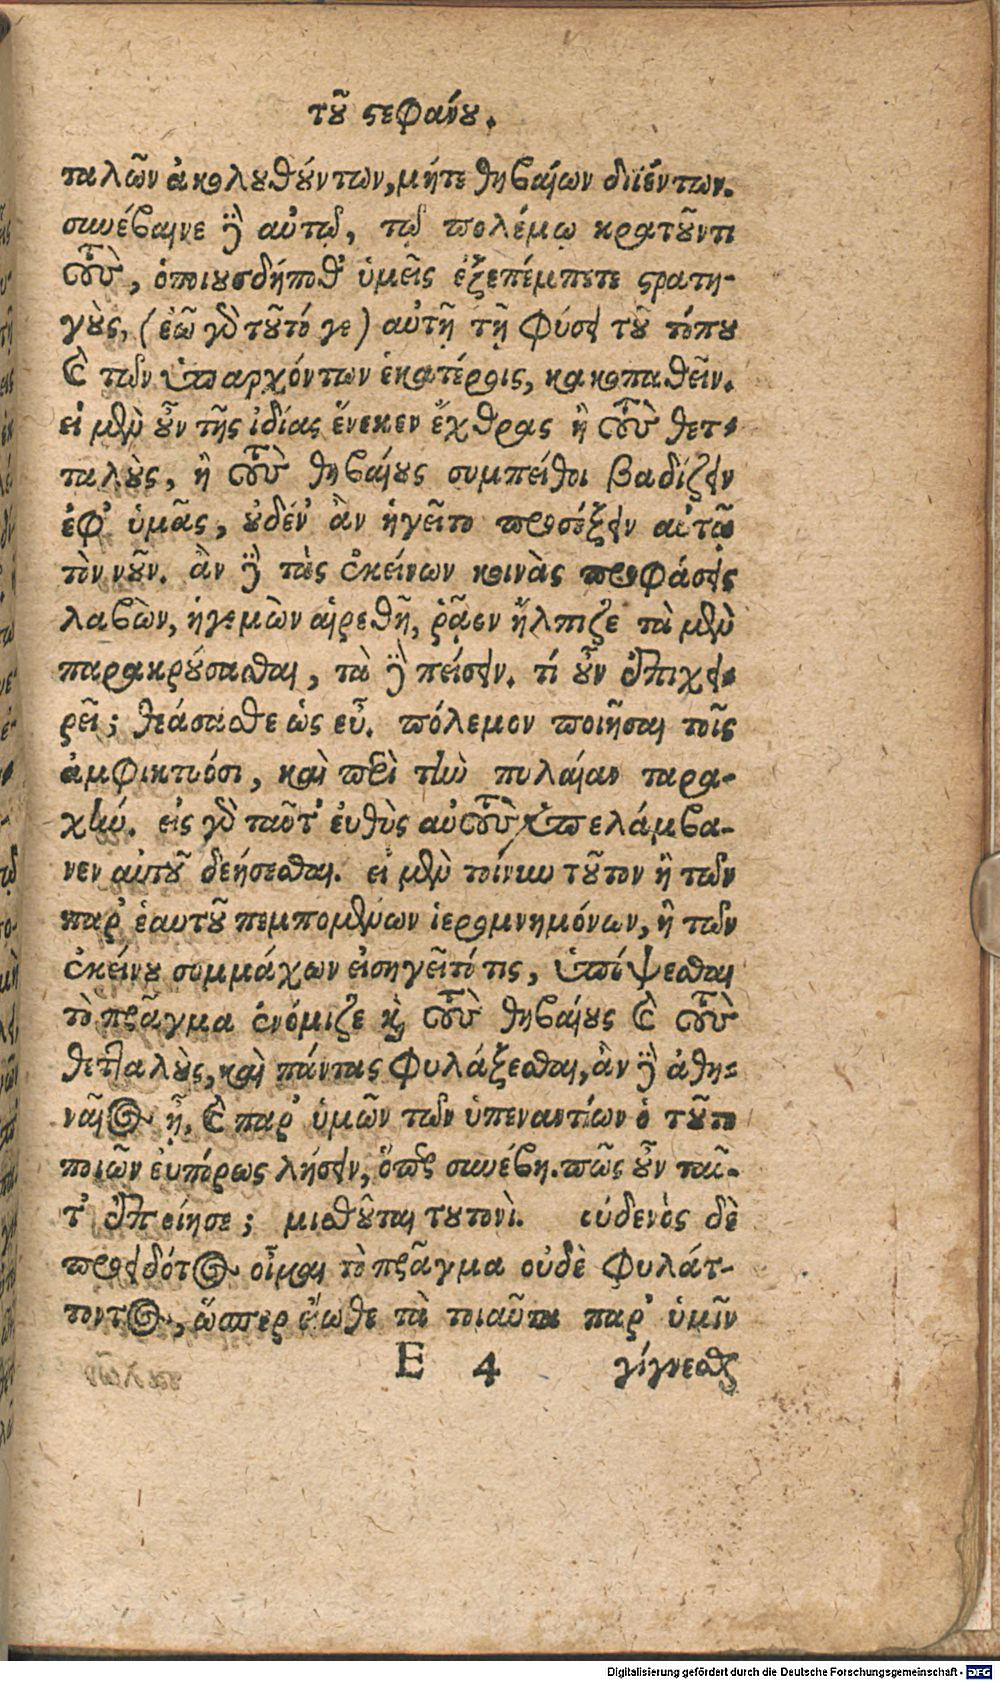 τοῦ στεφάνου.
ταλῶν ἀκολουθούντων, μήτε θηβαίων διϊέντων.
συνέβαινε δὲ αὐτῷ, τῷ πολέμῳ κρατοῦντι
τοὺς, ὁποιουσδήποθ' ὑμεῖς ἐξεπέμπετε στρατη-
γοὺς, (ἐῶ γὰρ τοῦτό γε) αὐτῇ τῇ φύσει τοῦ τόπου
καὶ τῶν ὑπαρχόντων ἑκατέροις, κακοπαθεῖν.
εἰ μὲν οὖν τῆς ἰδίας ἕνεκεν ἔχθρας ἢ τοὺς θετ-
ταλοὺς, ἢ τοὺς θηβαίους συμπείθοι βαδίζειν
ἐφ' ὑμᾶς, οὐδέν' ἂν ἡγεῖτο προσέξειν αὐτῷ
τὸν νοῦν. ἂν δὲ τὰς ἐκείνων κοινὰς προφάσεις
λαβὼν, ἡγεμὼν αἱρεθῇ, ῥᾷον ἤλπιζε τὰ μὲν
παρακρούσασθαι, τὰ δὲ πείσειν. τί οὖν ἐπιχει-
ρεῖ; θεάσασθε ὡς εὖ. πόλεμον ποιῆσαι τοῖς
ἀμφικτυόσι, καὶ περὶ τὴν πυλαίαν ταρα-
χήν. εἰς γὰρ ταῦτ' εὐθὺς αὐτοὺς ὑπελάμβα-
νεν αὐτοῦ δεήσεσθαι. εἰ μὲν τοίνυν τοῦτον ἢ τῶν
παρ' ἑαυτοῦ πεμπομένων ἱερομνημόνων, ἢ τῶν
ἐκείνου συμμάχων εἰσηγεῖτό τις, ὑπόψεσθαι
τὸ πρᾶγμα ἐνόμιζε καὶ τοὺς θηβαίους καὶ τοὺς
θετταλοὺς, καὶ πάντας φυλάξεσθαι, ἂν δὲ ἀθη-
ναῖος ᾖ, καὶ παρ' ὑμῶν τῶν ὑπεναντίων ὁ τοῦτο
ποιῶν εὐπόρως λήσειν, ὅπερ συνέβη. πῶς οὖν ταῦ-
τ' ἐποίησε; μισθοῦται τουτονὶ. οὐδενὸς δὲ
προειδότος οἶμαι τὸ πρᾶγμα οὐδὲ φυλάτ-
τοντος, ὥσπερ εἴωθε τὰ τοιαῦτα παρ' ὑμῖν
E 4 γίγνεσθαι
Digitalisierung gefördert durch die Deutsche Forschungsgemeinschaft - DFG